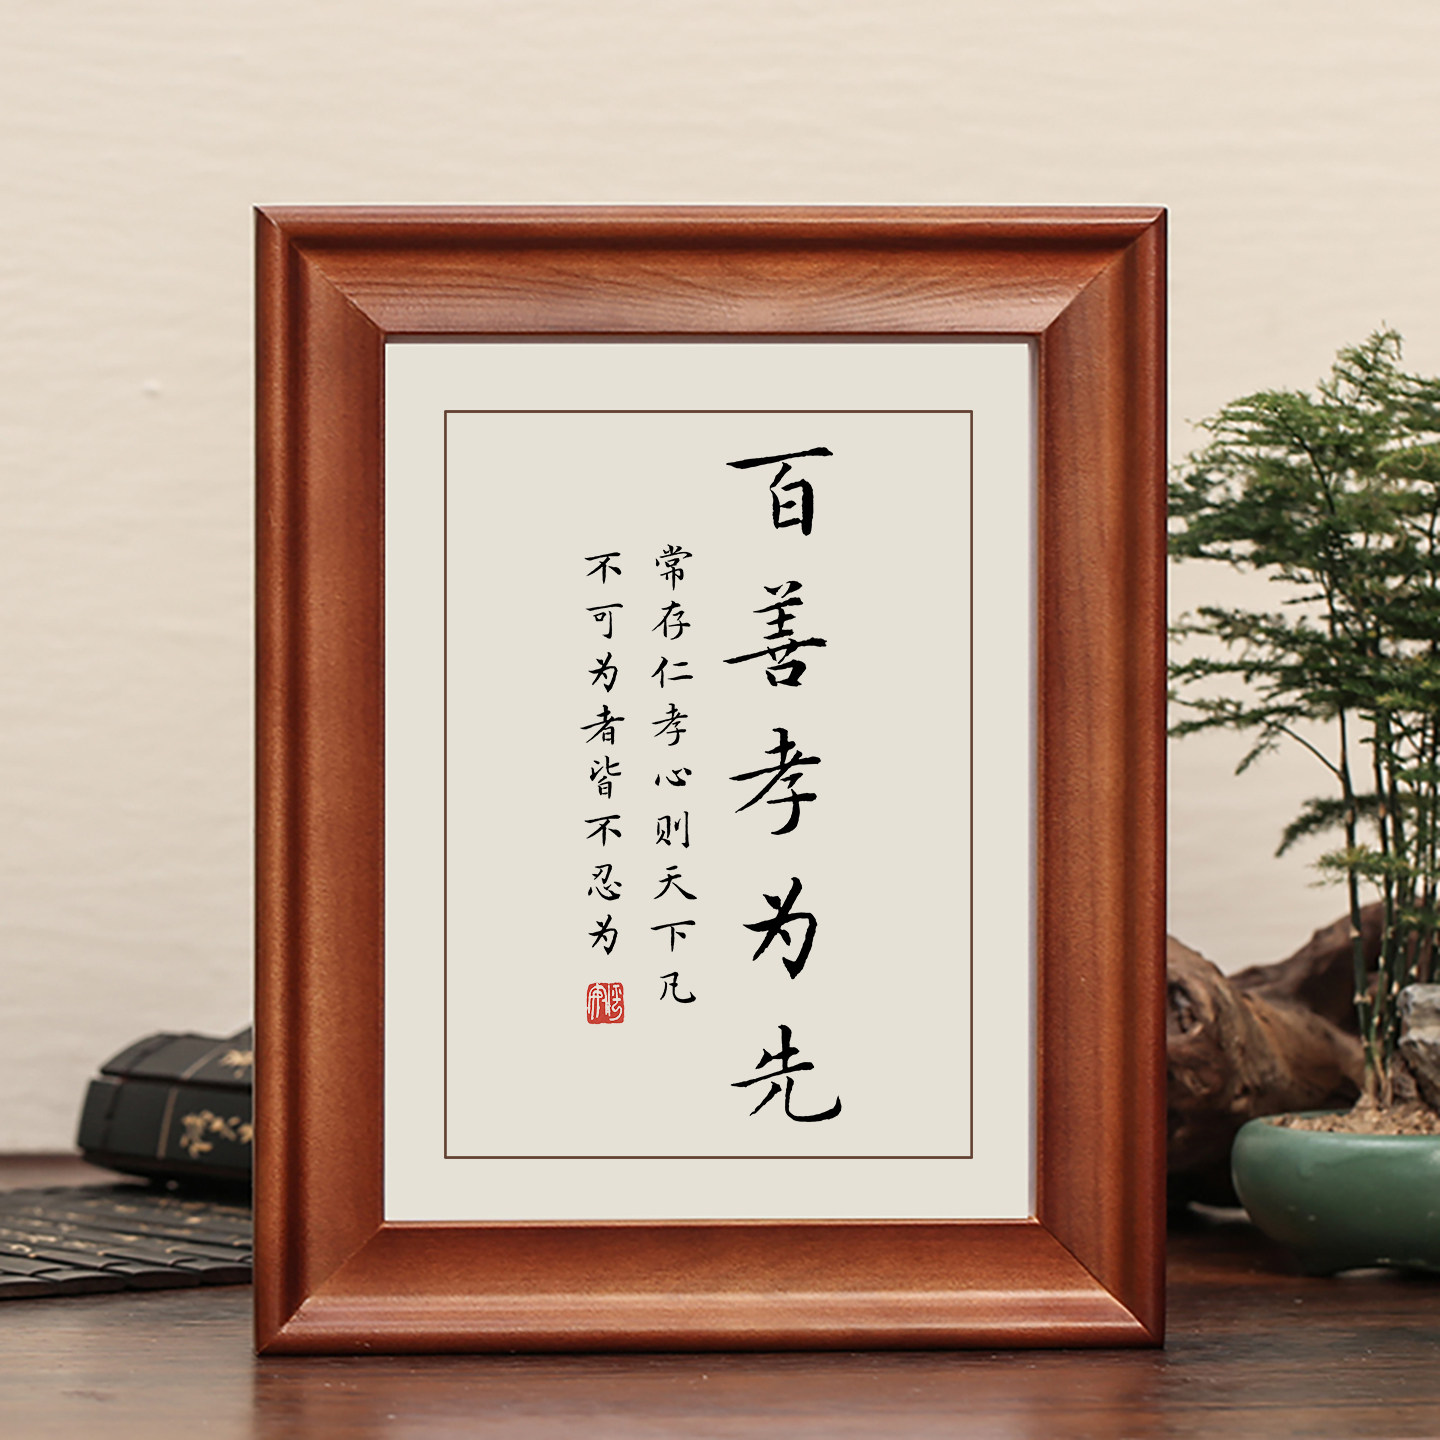 百善孝为先
常存仁孝心则天下凡
不可为者皆不忍为